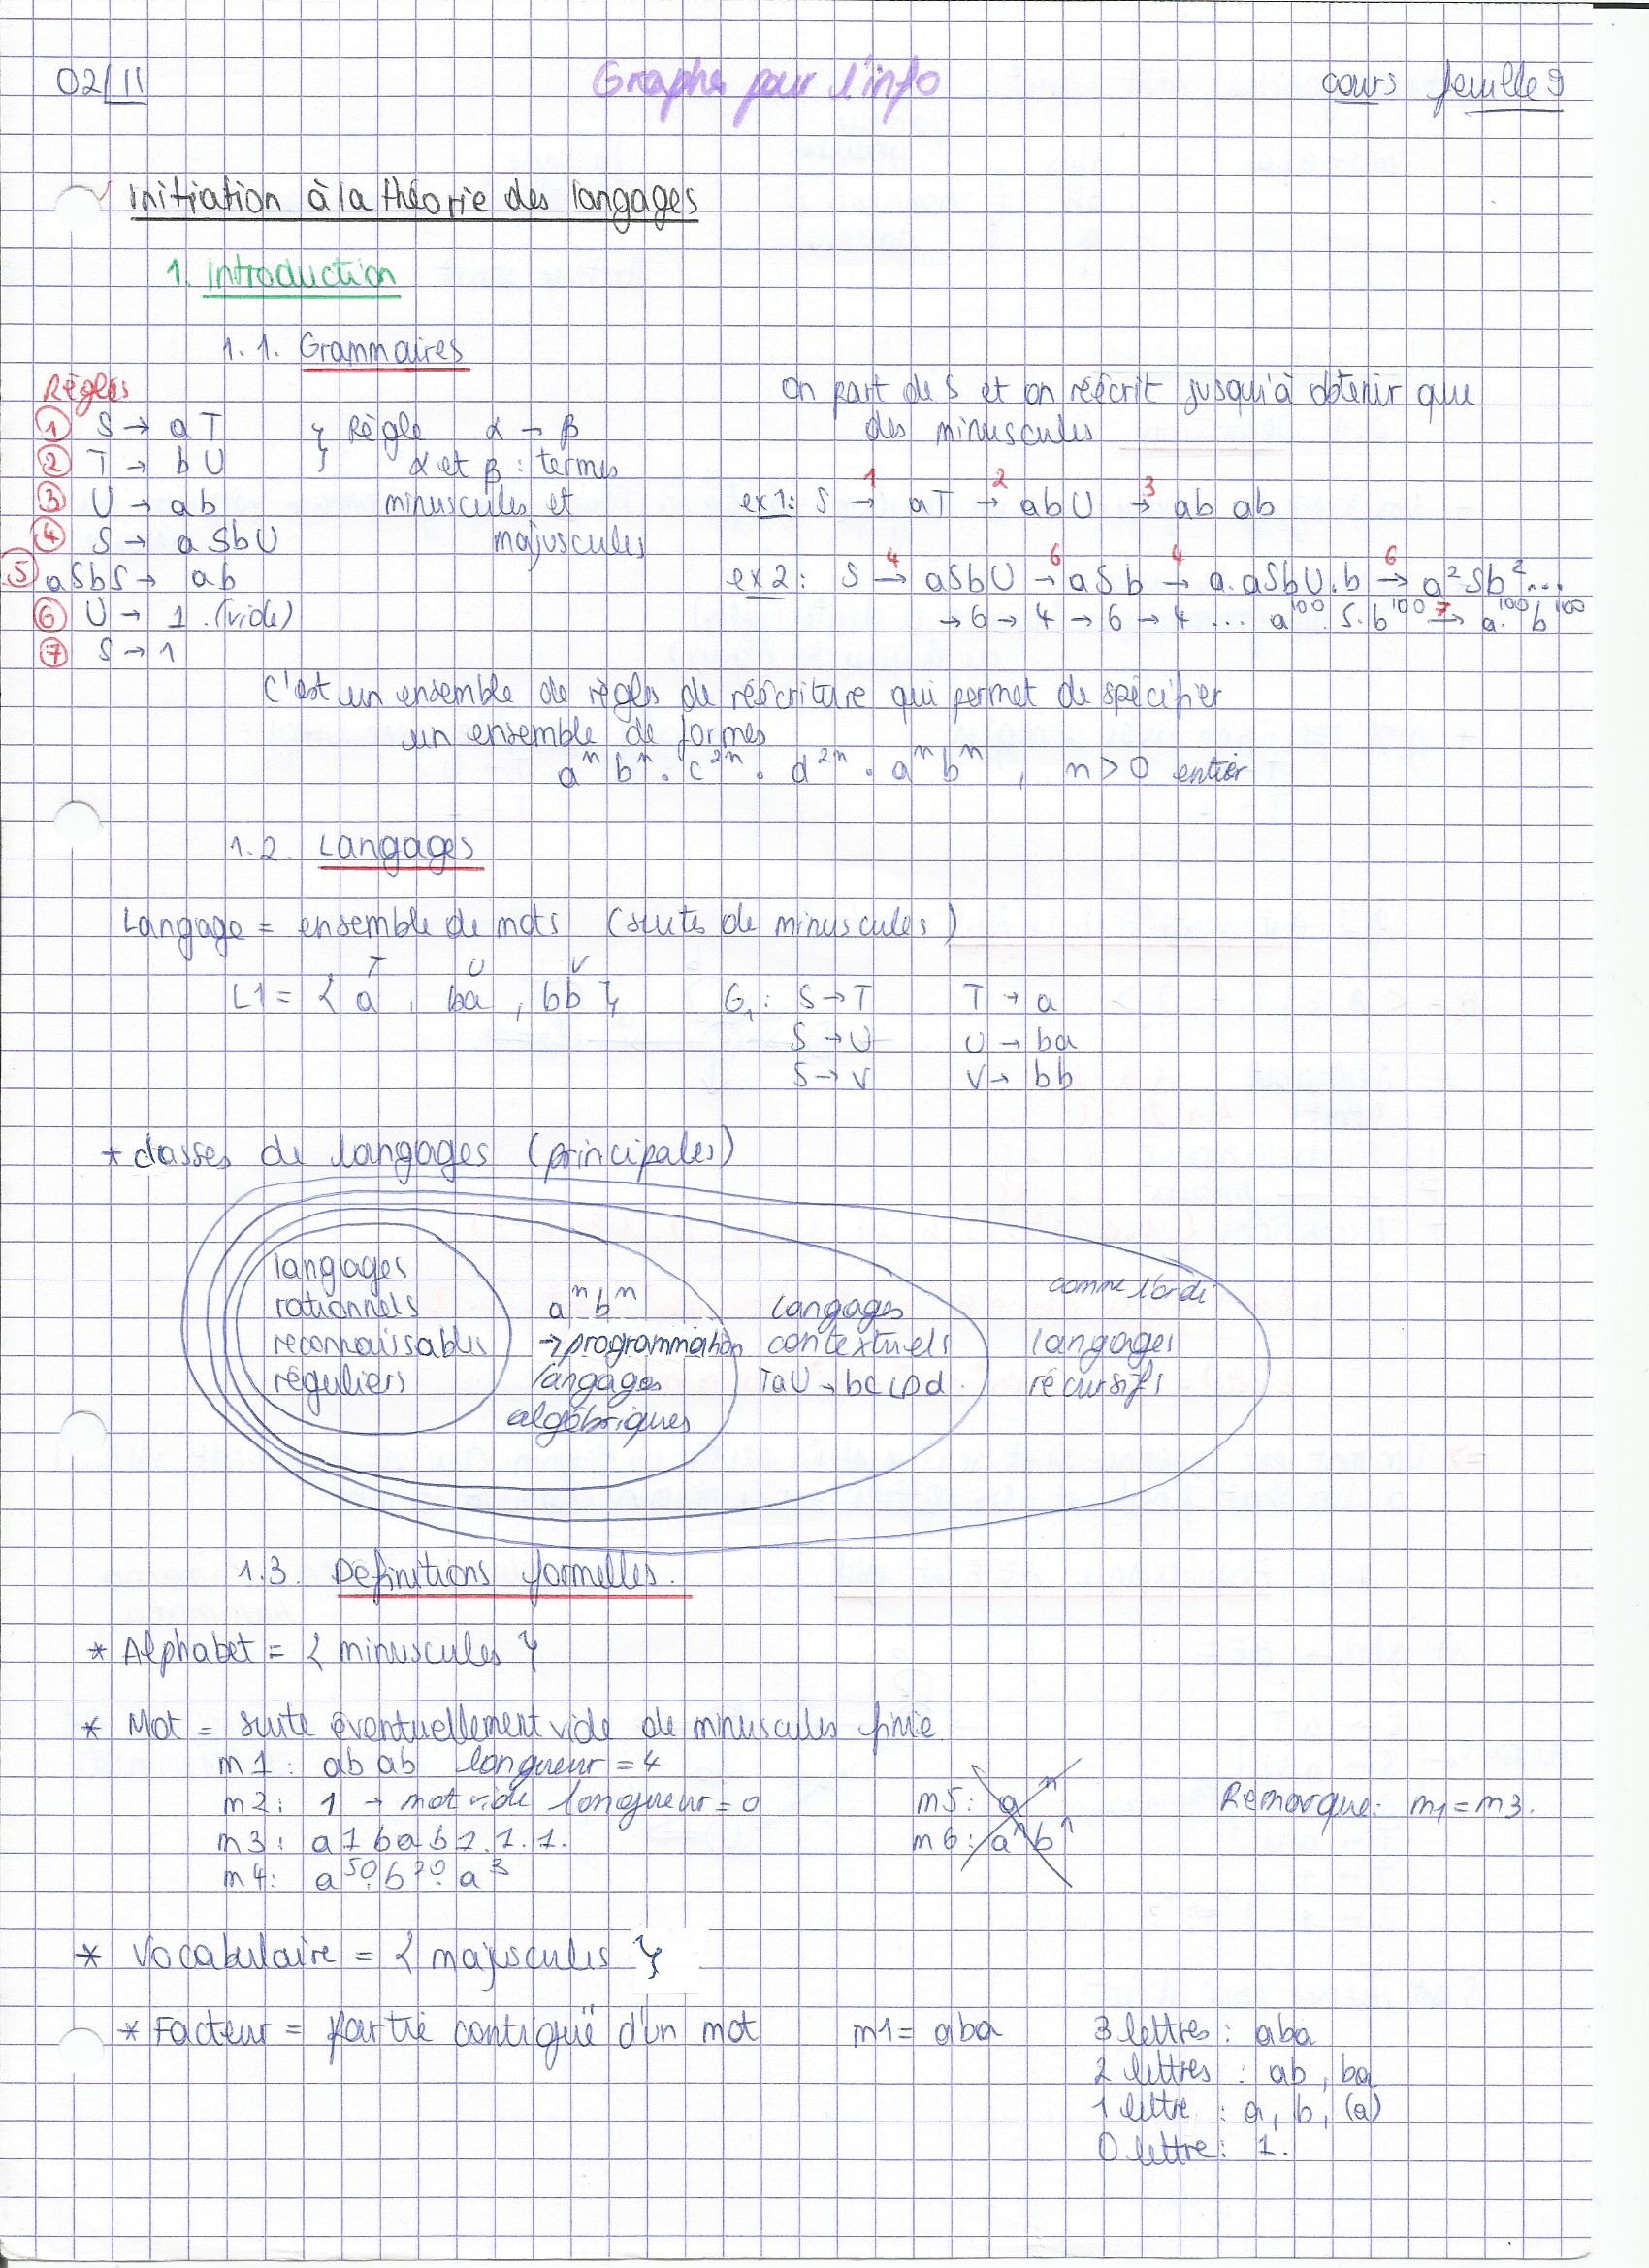 02/11 Graphe pour l'info cours feuille 9
Initiation à la théorie des langages
1. Introduction
1.1. Grammaires
Règles
① S → aT } Règle α → β
② T → bU } α et β : termes
③ U → ab minuscules et
④ S → aSbU majuscules
⑤ aSbS → ab
⑥ U → 1 . (vide)
⑦ S → 1
On part de S et on réécrit jusqu'à obtenir que
des minuscules
1 2 3
ex1: S → aT → abU → ab ab
4 6 4 6
ex2: S → aSbU → aSb → a.aSbU.b → a²Sb²...
→ 6 → 4 → 6 → 4 ... a¹⁰⁰.S.b¹⁰⁰ 7→ a.¹⁰⁰b¹⁰⁰
C'est un ensemble de règles de réécriture qui permet de spécifier
un ensemble de formes
aⁿbⁿ . c²ⁿ . d²ⁿ . aⁿbⁿ , n > 0 entier
1.2. Langages
Langage = ensemble de mots (suites de minuscules)
T U V
L1 = { a , ba , bb } G₁ : S → T T → a
S → U U → ba
S → V V → bb
* classes de langages (principales)
langages
rationnels
reconnaissables
réguliers
aⁿbⁿ
→ programmation
langages
algébriques
Langages
contextuels
TaU → bcUDd.
comme l'ordi
langages
récursifs
1.3. Définitions formelles.
* Alphabet = { minuscules }
* Mot = suite éventuellement vide de minuscules finie.
m1 : ab ab longueur = 4
m2 : 1 → mot vide longueur = 0
m3 : a 1 b a b 1 . 1 . 1.
m4 : a⁵⁰.b²⁰.a³
m5 : aⁿ
m6 : aⁿbⁿ
Remarque : m1 = m3.
* Vocabulaire = { majuscules }
* Facteur = partie contiguë d'un mot m1 = aba 3 lettres : aba
2 lettres : ab, ba
1 lettre : a, b, (a)
0 lettre : 1.